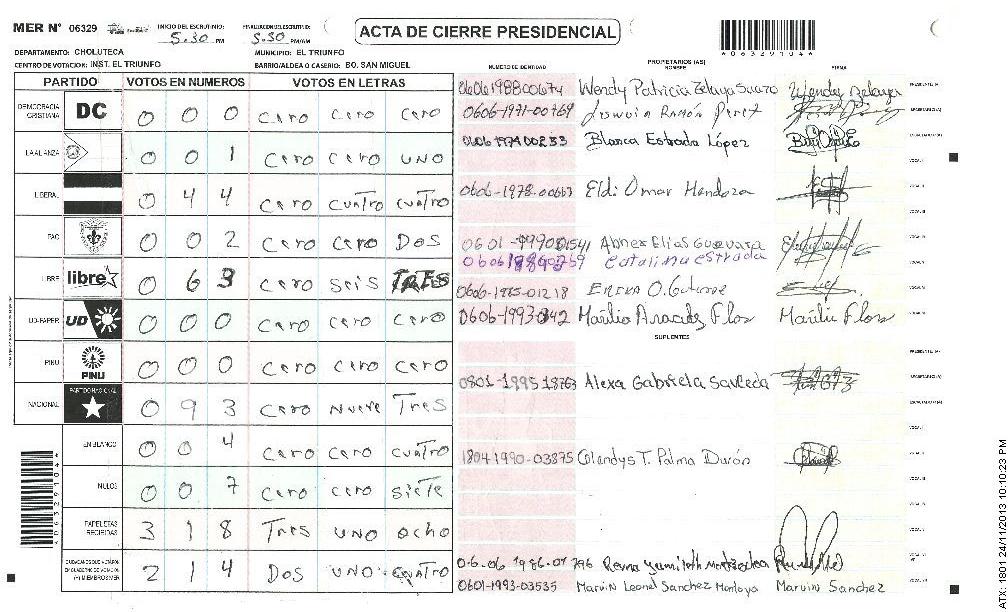 MER N° 06329 INICIO DEL ESCRUTINIO: 5.30 PM FINALIZACIÓN DEL ESCRUTINIO: 5.30 PM/AM ACTA DE CIERRE PRESIDENCIAL
*06329104*
DEPARTAMENTO: CHOLUTECA MUNICIPIO: EL TRIUNFO
CENTRO DE VOTACION: INST. EL TRIUNFO BARRIO/ALDEA O CASERIO: BO. SAN MIGUEL
PARTIDO VOTOS EN NUMEROS VOTOS EN LETRAS
DEMOCRACIA CRISTIANA DC 0 0 0 Cero Cero Cero
LA ALIANZA 0 0 1 Cero Cero UNO
LIBERAL 0 4 4 Cero Cuatro Cuatro
PAC 0 0 2 Cero Cero Dos
LIBRE libre 0 6 3 Cero Seis TRES
UD-FAPER UD 0 0 0 Cero Cero Cero
PINU PINU 0 0 0 Cero Cero Cero
NACIONAL PARTIDO NACIONAL 0 9 3 Cero Nueve Tres
EN BLANCO 0 0 4 Cero Cero Cuatro
NULOS 0 0 7 Cero Cero Siete
PAPELETAS RECIBIDAS 3 1 8 Tres UNO Ocho
2 1 4 DOS UNO Cuatro
NUMERO DE IDENTIDAD PROPIETARIOS (AS) NOMBRE FIRMA
0606198800674 Wendy Patricia Zelaya Suazo Wendy Zelaya
0606-1971-00769 Ramón Perez
Blanca Estrada López
0606-1978-00663 Eldi Omar Mendoza
Abner Elias Guevara
Catalina Estrada
0606-1985-01218 Erika O. Gutierrez
Marilia Aracely Flores Marilia Flores
SUPLENTES
0801-1995 18763 Alexa Gabriela Sauceda
1804 1990-03875 Colandys T. Palma Durón
0601-1993-03535 Marvin Leonel Sanchez Montoya Marvin Sanchez
*06329104*
ATX: 1801 24/11/2013 10:10:23 PM